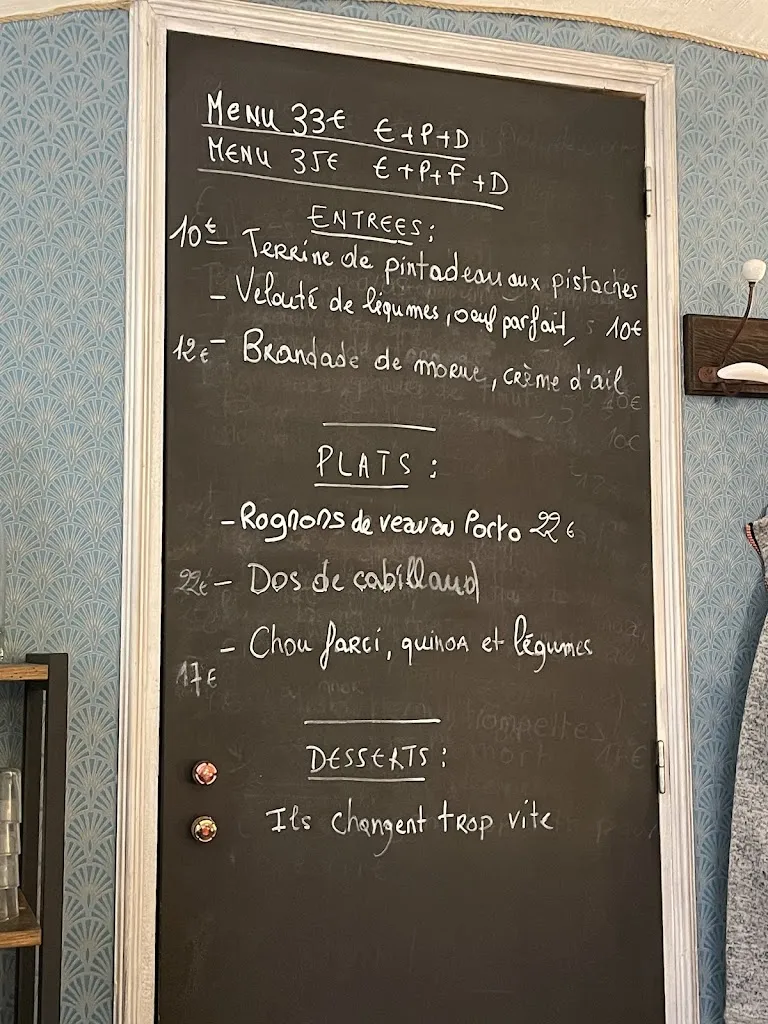 MENU 33€ E+P+D
MENU 35€ E+P+F+D
ENTREES:
10€ - Terrine de pintadeau aux pistaches
- Velouté de légumes, oeuf parfait, 10€
12€ - Brandade de morue, crème d'ail
10€
10€
PLATS:
- Rognons de veau au Porto 22€
22€ - Dos de cabillaud
- Chou farci, quinoa et légumes
17€
DESSERTS:
Ils changent trop vite